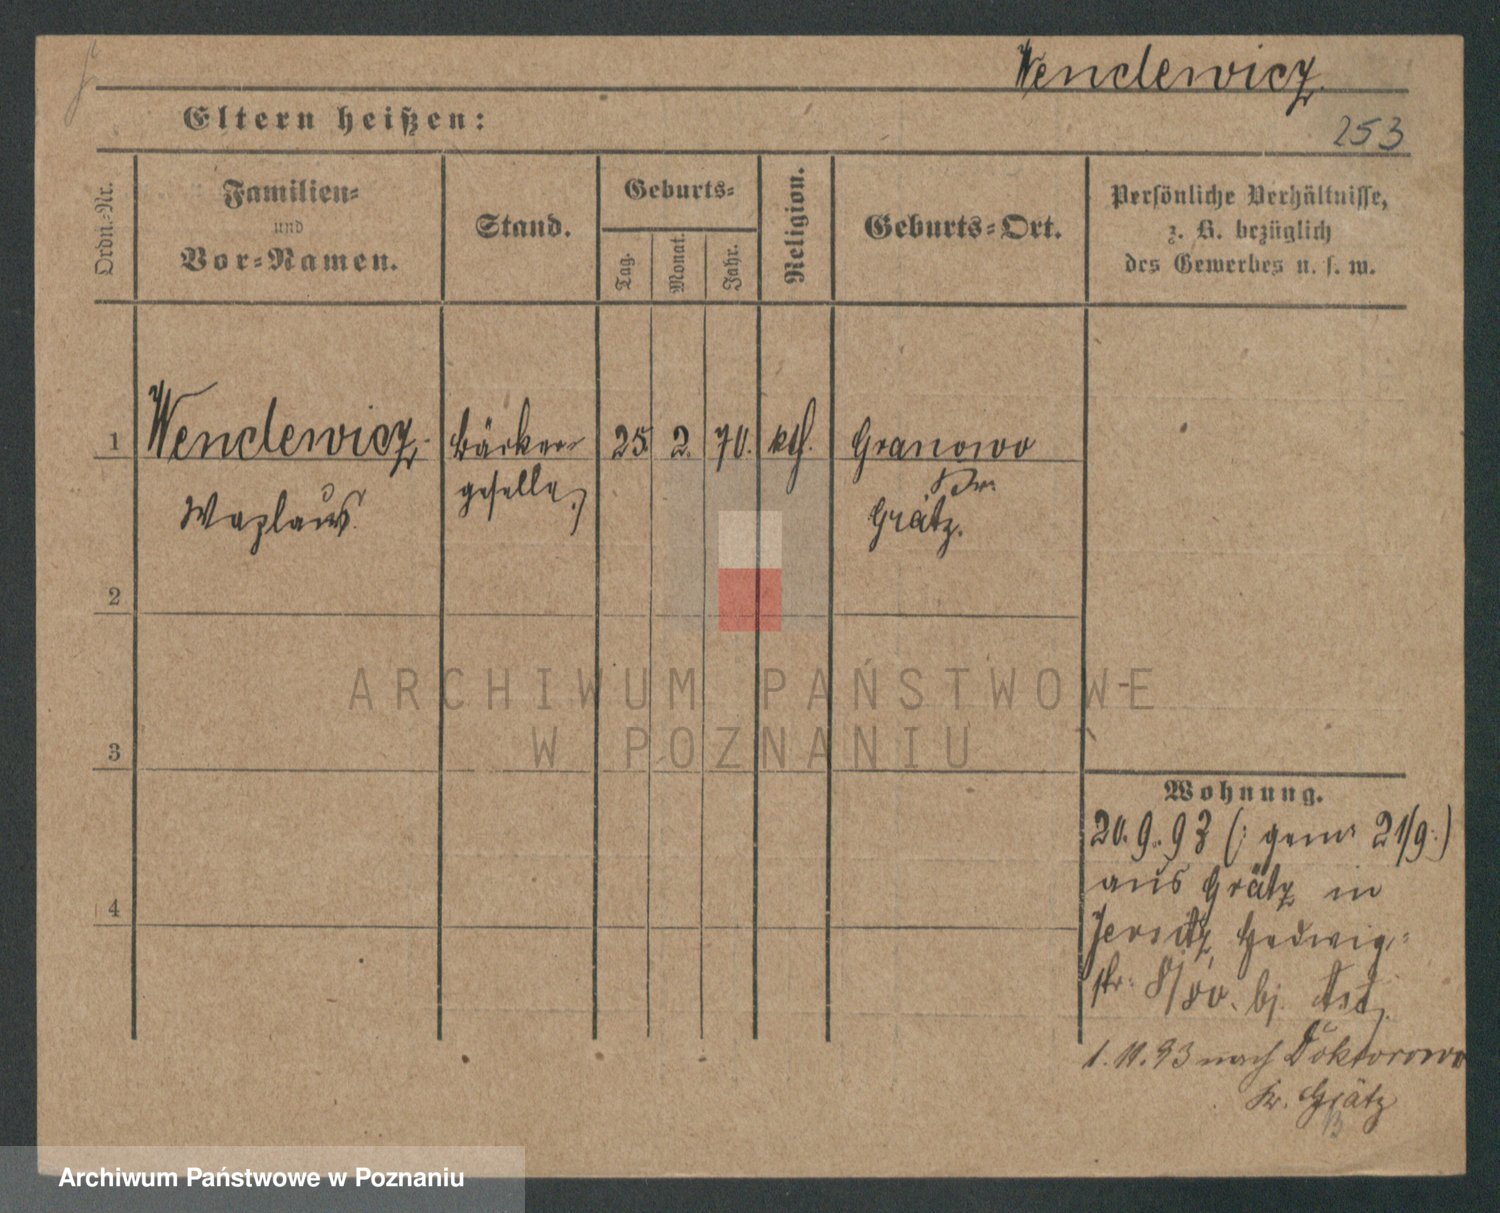 Wenclewicz.
Eltern heißen:
253
Ordn.-Nr.
Familien-
und
Vor-Namen.
Stand.
Geburts-
Tag.
Monat.
Jahr.
Religion.
Geburts-Ort.
Persönliche Verhältnisse,
z. B. bezüglich
des Gewerbes u. s. w.
1 Wenclewicz. Bäcker- 25. 2. 70. kth. Granowo
geselle Kr.
Wazlaus. Grätz.
2
ARCHIWUM PAŃSTWOWE
W POZNANIU
3
Wohnung.
20. 9. 93 (: gem: 21/9 :)
aus Grätz in
Jersitz, Hedwig-
str: 8/ bei
4
1. 11. 93 nach Doktorowo
Kr. Grätz
Archiwum Państwowe w Poznaniu